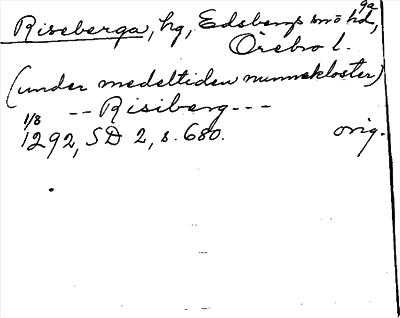 Riseberga, hg, Edsbergs små hd,
Örebro l.
(under medeltiden nunnekloster)
-- Risiberg ---
1/8
1292, SD 2, s. 680. orig.